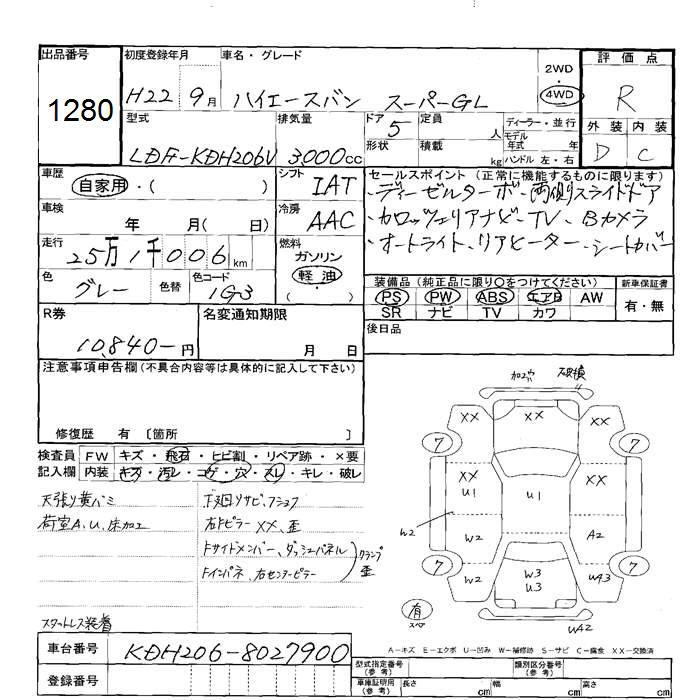 出品番号
1280
初度登録年月
H22 9月
車名・グレード
ハイエースバン スーパーGL
2WD
・
4WD
評価点
R
外装 内装
D C
型式
LDF-KDH206V
排気量
3,000cc
ドア
5
形状
定員
人
積載
kg
ディーラー・並行
モデル年式 年
ハンドル 左・右
車歴
自家用・( )
シフト
IAT
車検
年 月( 日)
冷房
AAC
走行
25万1千006km
燃料
ガソリン
軽油
・( )
色
グレー
色替
色コード
1G3
セールスポイント (正常に機能するものに限ります)
・ディーゼルターボ・両側スライドドア
・カロッツェリアナビ・TV、Bカメラ
・オートライト、リアヒーター・シートカバー
装備品(純正品に限り○をつけてください)
PS PW ABS エアB AW
SR ナビ TV カワ
新車保証書
有・無
後日品
R券
10,840-円
名変通知期限
月 日
注意事項申告欄(不具合内容等は具体的に記入して下さい)
修復歴 有 〔箇所 〕
検査員記入欄
FW キズ・飛石・ヒビ割・リペア跡・×要
内装 キズ・汚レ・コゲ・穴・スレ・キレ・破レ
天張り黄バミ
荷室A、U、床加工
スタットレス装着
下廻りサビ、
右Fピラーxx、歪
Fサイドメンバー、ダッシュパネル
Fインパネ、右センターピラー
クランプ歪
加工ワ 破損
XX XX XX
7 7
XX U1 U1 XX
W2 W2 A2
7 7
W2 W3 U3 UA3
有
スペア
UA2
A-キズ E-エクボ U-凹み W-補修跡 S-サビ C-腐食 XX-交換済
車台番号
KDH206-8027900
登録番号
型式指定番号(参考)
類別区分番号(参考)
車庫証明用(参考)
長さ cm
幅 cm
高さ cm